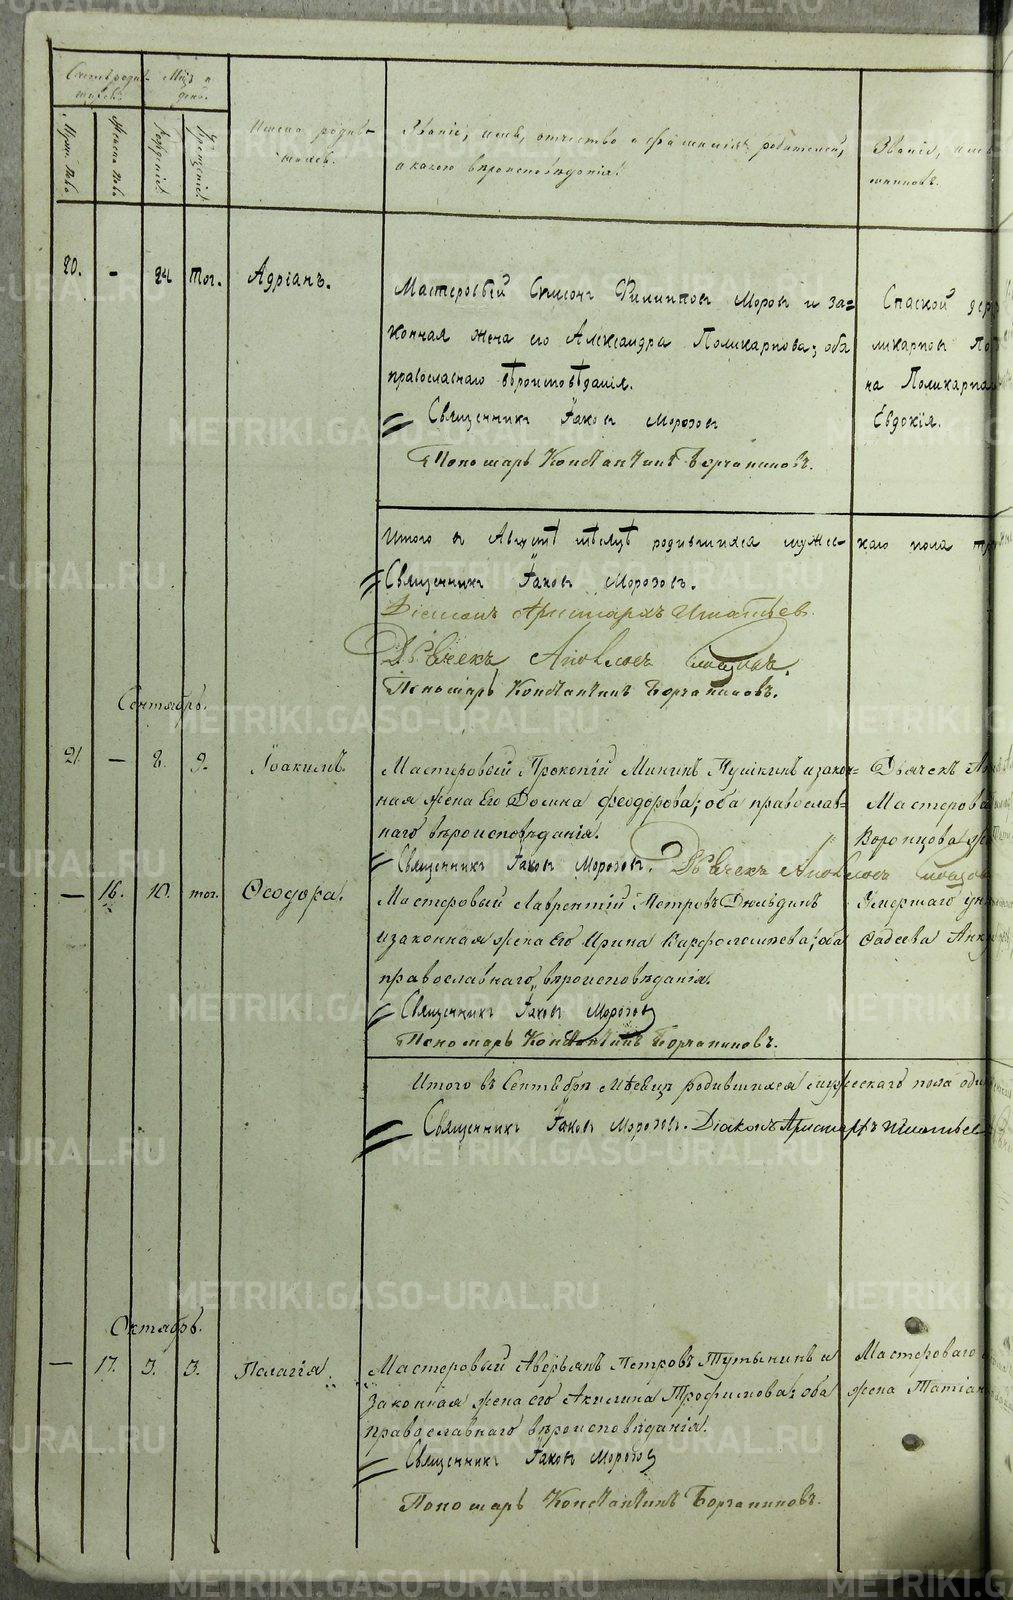 Счетъ родив- Мѣс. и
шихся. день.
Муж. пола
Женска пола
Рожденія.
Крещенія.
Имена родив-
шихся.
Званіе, имя, отчество и фамилія родителей,
и какого вѣроисповѣданія.
Званіе, имя
20. - 24 тог. Адріанъ.
Мастеровый Симеонъ Филиппов и за=
конная жена его Александра Поликарпова; оба
православнаго вѣроисповѣданія.
Священникъ Іаковъ Морозовъ
Пономарь Константинъ Борчаниновъ.
Спаской дер
ликарпов По
на Поликарпа
Евдокія.
Итого в Августѣ мѣсяцѣ родившихся мужес- каго пола
Священникъ Іаковъ Морозовъ.
Діаконъ Аристархъ Игнатьев.
Дьячекъ
Пономарь Константинъ Борчаниновъ.
Сентябрь.
21. - 8. 9. Іоакимъ.
Мастеровый Прокопій Микинъ Пушкинъ и закон=
ная жена Его Домна Феодорова; оба православ=
наго вѣроисповѣданія.
Священникъ Іаковъ Морозов. Дьячекъ
Дьячекъ
Мастерова
Воронцова
- 16. 10. тог. Ѳеодора.
Мастеровый Лаврентій Петровъ Дюльдинъ
и законная жена Его Ирина Варфоломеева; оба
православнаго вѣроисповѣданія.
Священникъ Іаковъ Морозов
Пономарь Константинъ Борчаниновъ.
Умершаго
Фадеева
Итого въ Сентябрѣ Мѣсяцѣ родившихся мужескаго пола
Священникъ Іаковъ Морозов. Діаконъ Аристархъ Игнатьев
Октябрь.
- 17. 3. 3. Пелагія.
Мастеровый Аверьянъ Петровъ Тутынинъ и
законная жена его Акилина Трофимова; оба
православнаго вѣроисповѣданія.
Священникъ Іаковъ Морозов
Пономарь Константинъ Борчаниновъ.
Мастероваго
жена Татіан
METRIKI.GASO-URAL.RU